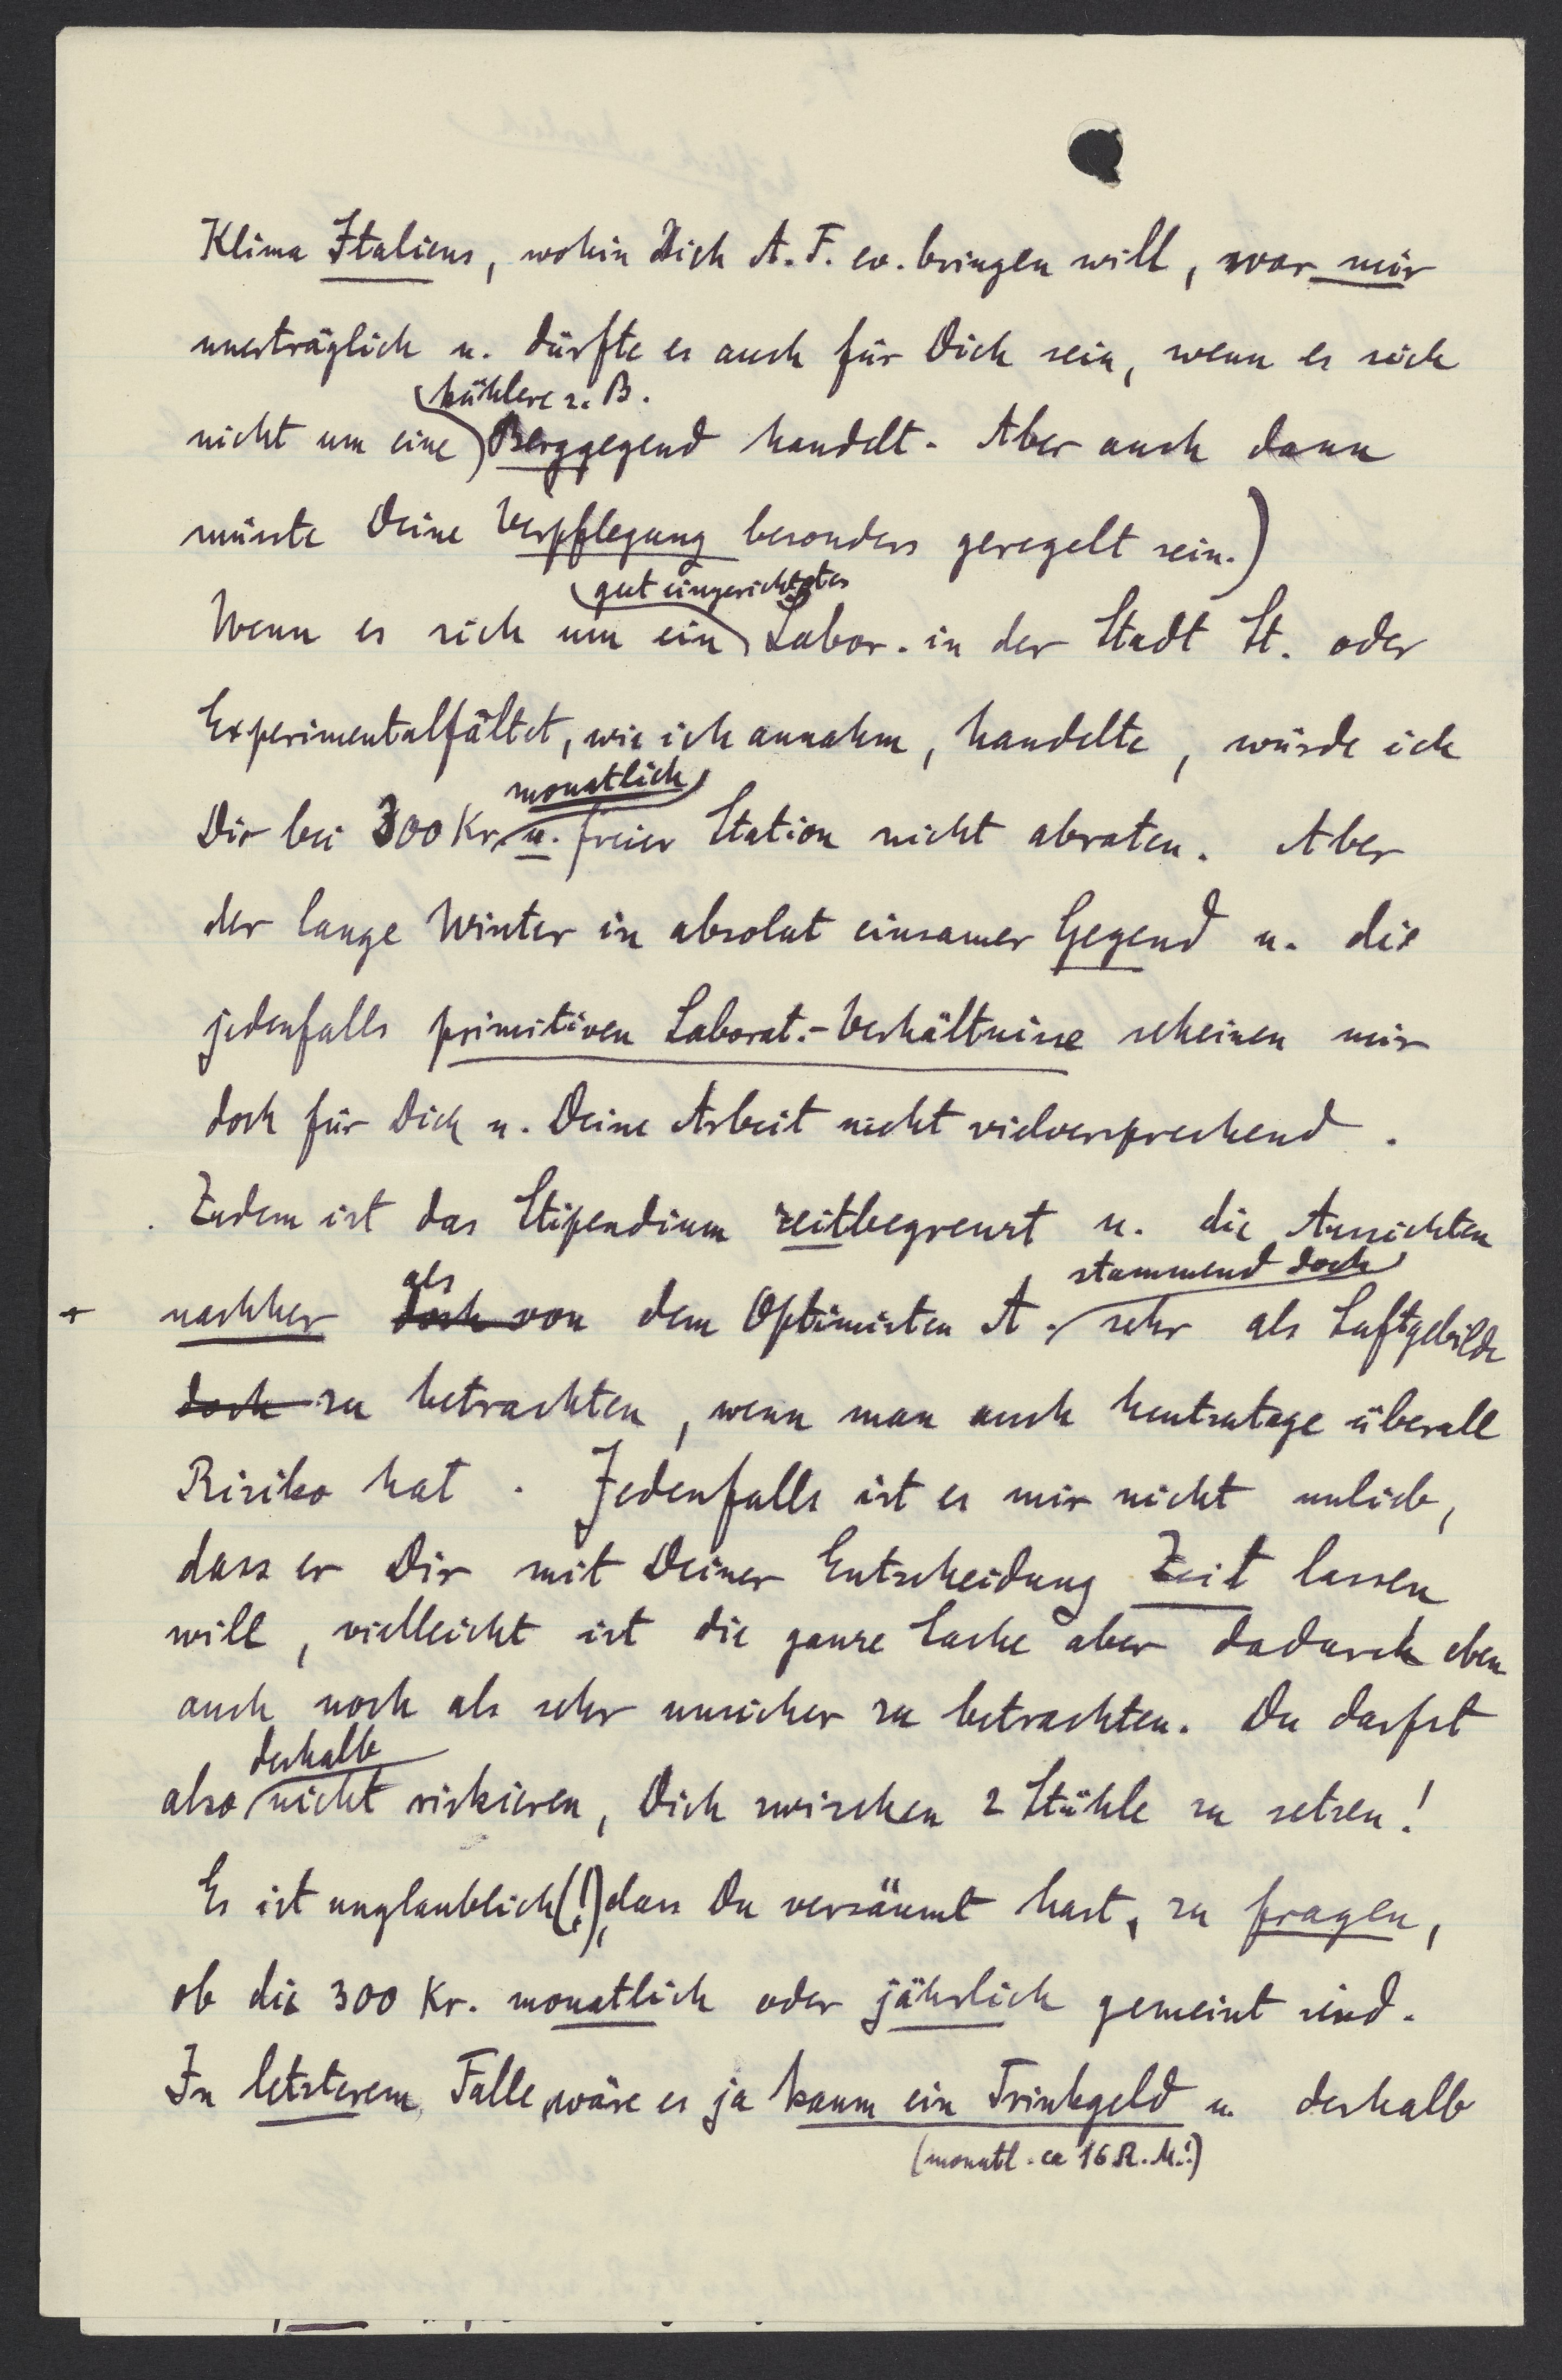 Klima Italiens, wohin Dich A. F. ev. bringen will, war mir
unerträglich u. dürfte es auch für Dich sein, wenn es sich
kühlere z. B.
nicht um eine Berggegend handelt. Aber auch dann
müsste Deine Verpflegung besonders geregelt sein.)
gut eingerichtetes
Wenn es sich um ein Labor. in der Stadt St. oder
Experimentalfältet, wie ich annahm, handelte, würde ich
monatlich
Dir bei 300 Kr. u. freier Station nicht abraten. Aber
der lange Winter in absolut einsamer Gegend u. die
jedenfalls primitiven Laborat.-Verhältnisse scheinen mir
doch für Dich u. Deine Arbeit nicht vielversprechend.
Zudem ist das Stipendium zeitbegrenzt u. die Aussichten
als stammend doch
+ nachher doch von dem Optimisten A. sehr als Luftgebilde
doch zu betrachten, wenn man auch heutzutage überall
Risiko hat. Jedenfalls ist es mir nicht unlieb,
dass er Dir mit Deiner Entscheidung Zeit lassen
will, vielleicht ist die ganze Sache aber dadurch eben
auch noch als sehr unsicher zu betrachten. Du darfst
deshalb
also nicht riskieren, Dich zwischen 2 Stühle zu setzen!
Es ist unglaublich(!), dass Du versäumt hast, zu fragen,
ob die 300 Kr. monatlich oder jährlich gemeint sind.
In letzterem Falle wäre es ja kaum ein Trinkgeld u. deshalb
(monatl. ca 16 R.M.!)